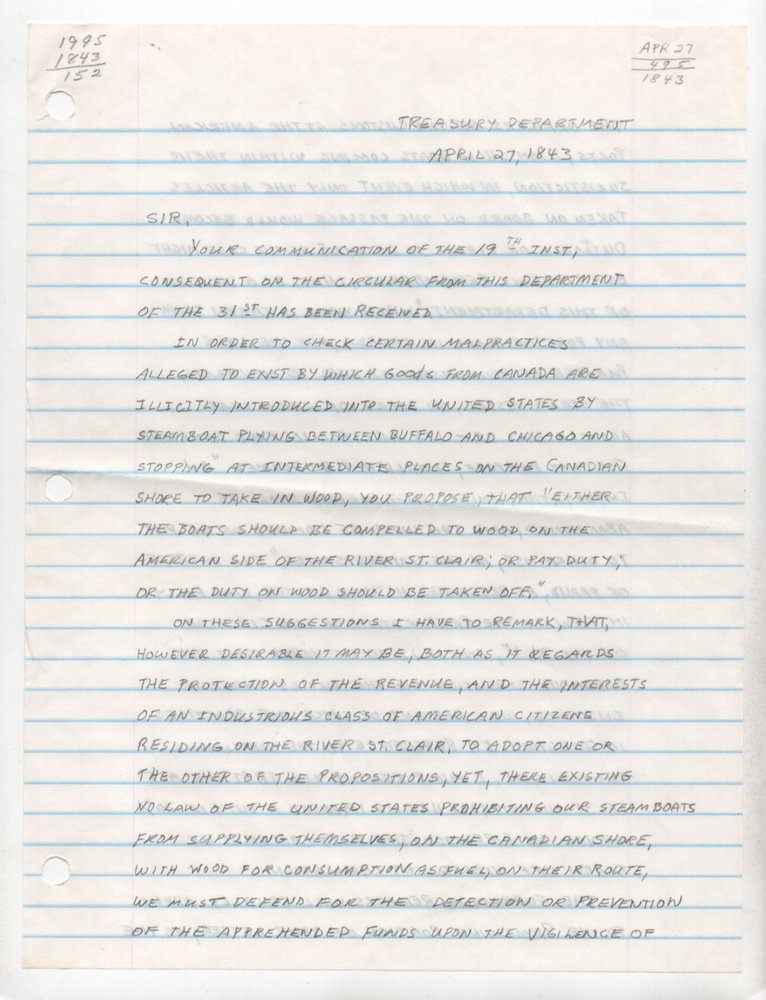 1995
1843
152
APR 27
495
1843
TREASURY DEPARTMENT
APRIL 27, 1843
SIR,
YOUR COMMUNICATION OF THE 19TH INST,
CONSEQUENT ON THE CIRCULAR FROM THIS DEPARTMENT
OF THE 31ST HAS BEEN RECEIVED
IN ORDER TO CHECK CERTAIN MALPRACTICES
ALLEGED TO EXIST BY WHICH GOODS FROM CANADA ARE
ILLICITLY INTRODUCED INTO THE UNITED STATES BY
STEAMBOAT PLYING BETWEEN BUFFALO AND CHICAGO AND
STOPPING" AT INTERMEDIATE PLACES ON THE CANADIAN
SHORE TO TAKE IN WOOD, YOU PROPOSE, THAT "EITHER
THE BOATS SHOULD BE COMPELLED TO WOOD ON THE
AMERICAN SIDE" OF THE RIVER ST. CLAIR; OR PAY DUTY;"
OR THE DUTY ON WOOD SHOULD BE TAKEN OFF."
ON THESE SUGGESTIONS I HAVE TO REMARK, THAT,
HOWEVER DESIRABLE IT MAY BE, BOTH AS IT REGARDS
THE PROTECTION OF THE REVENUE, AND THE INTERESTS
OF AN INDUSTRIOUS CLASS OF AMERICAN CITIZENS
RESIDING ON THE RIVER ST. CLAIR, TO ADOPT ONE OR
THE OTHER OF THE PROPOSITIONS, YET, THERE EXISTING
NO LAW OF THE UNITED STATES PROHIBITING OUR STEAMBOATS
FROM SUPPLYING THEMSELVES, ON THE CANADIAN SHORE,
WITH WOOD FOR CONSUMPTION AS FUEL, ON THEIR ROUTE,
WE MUST DEFEND FOR THE DETECTION OR PREVENTION
OF THE APPREHENDED FUNDS UPON THE VIGILENCE OF